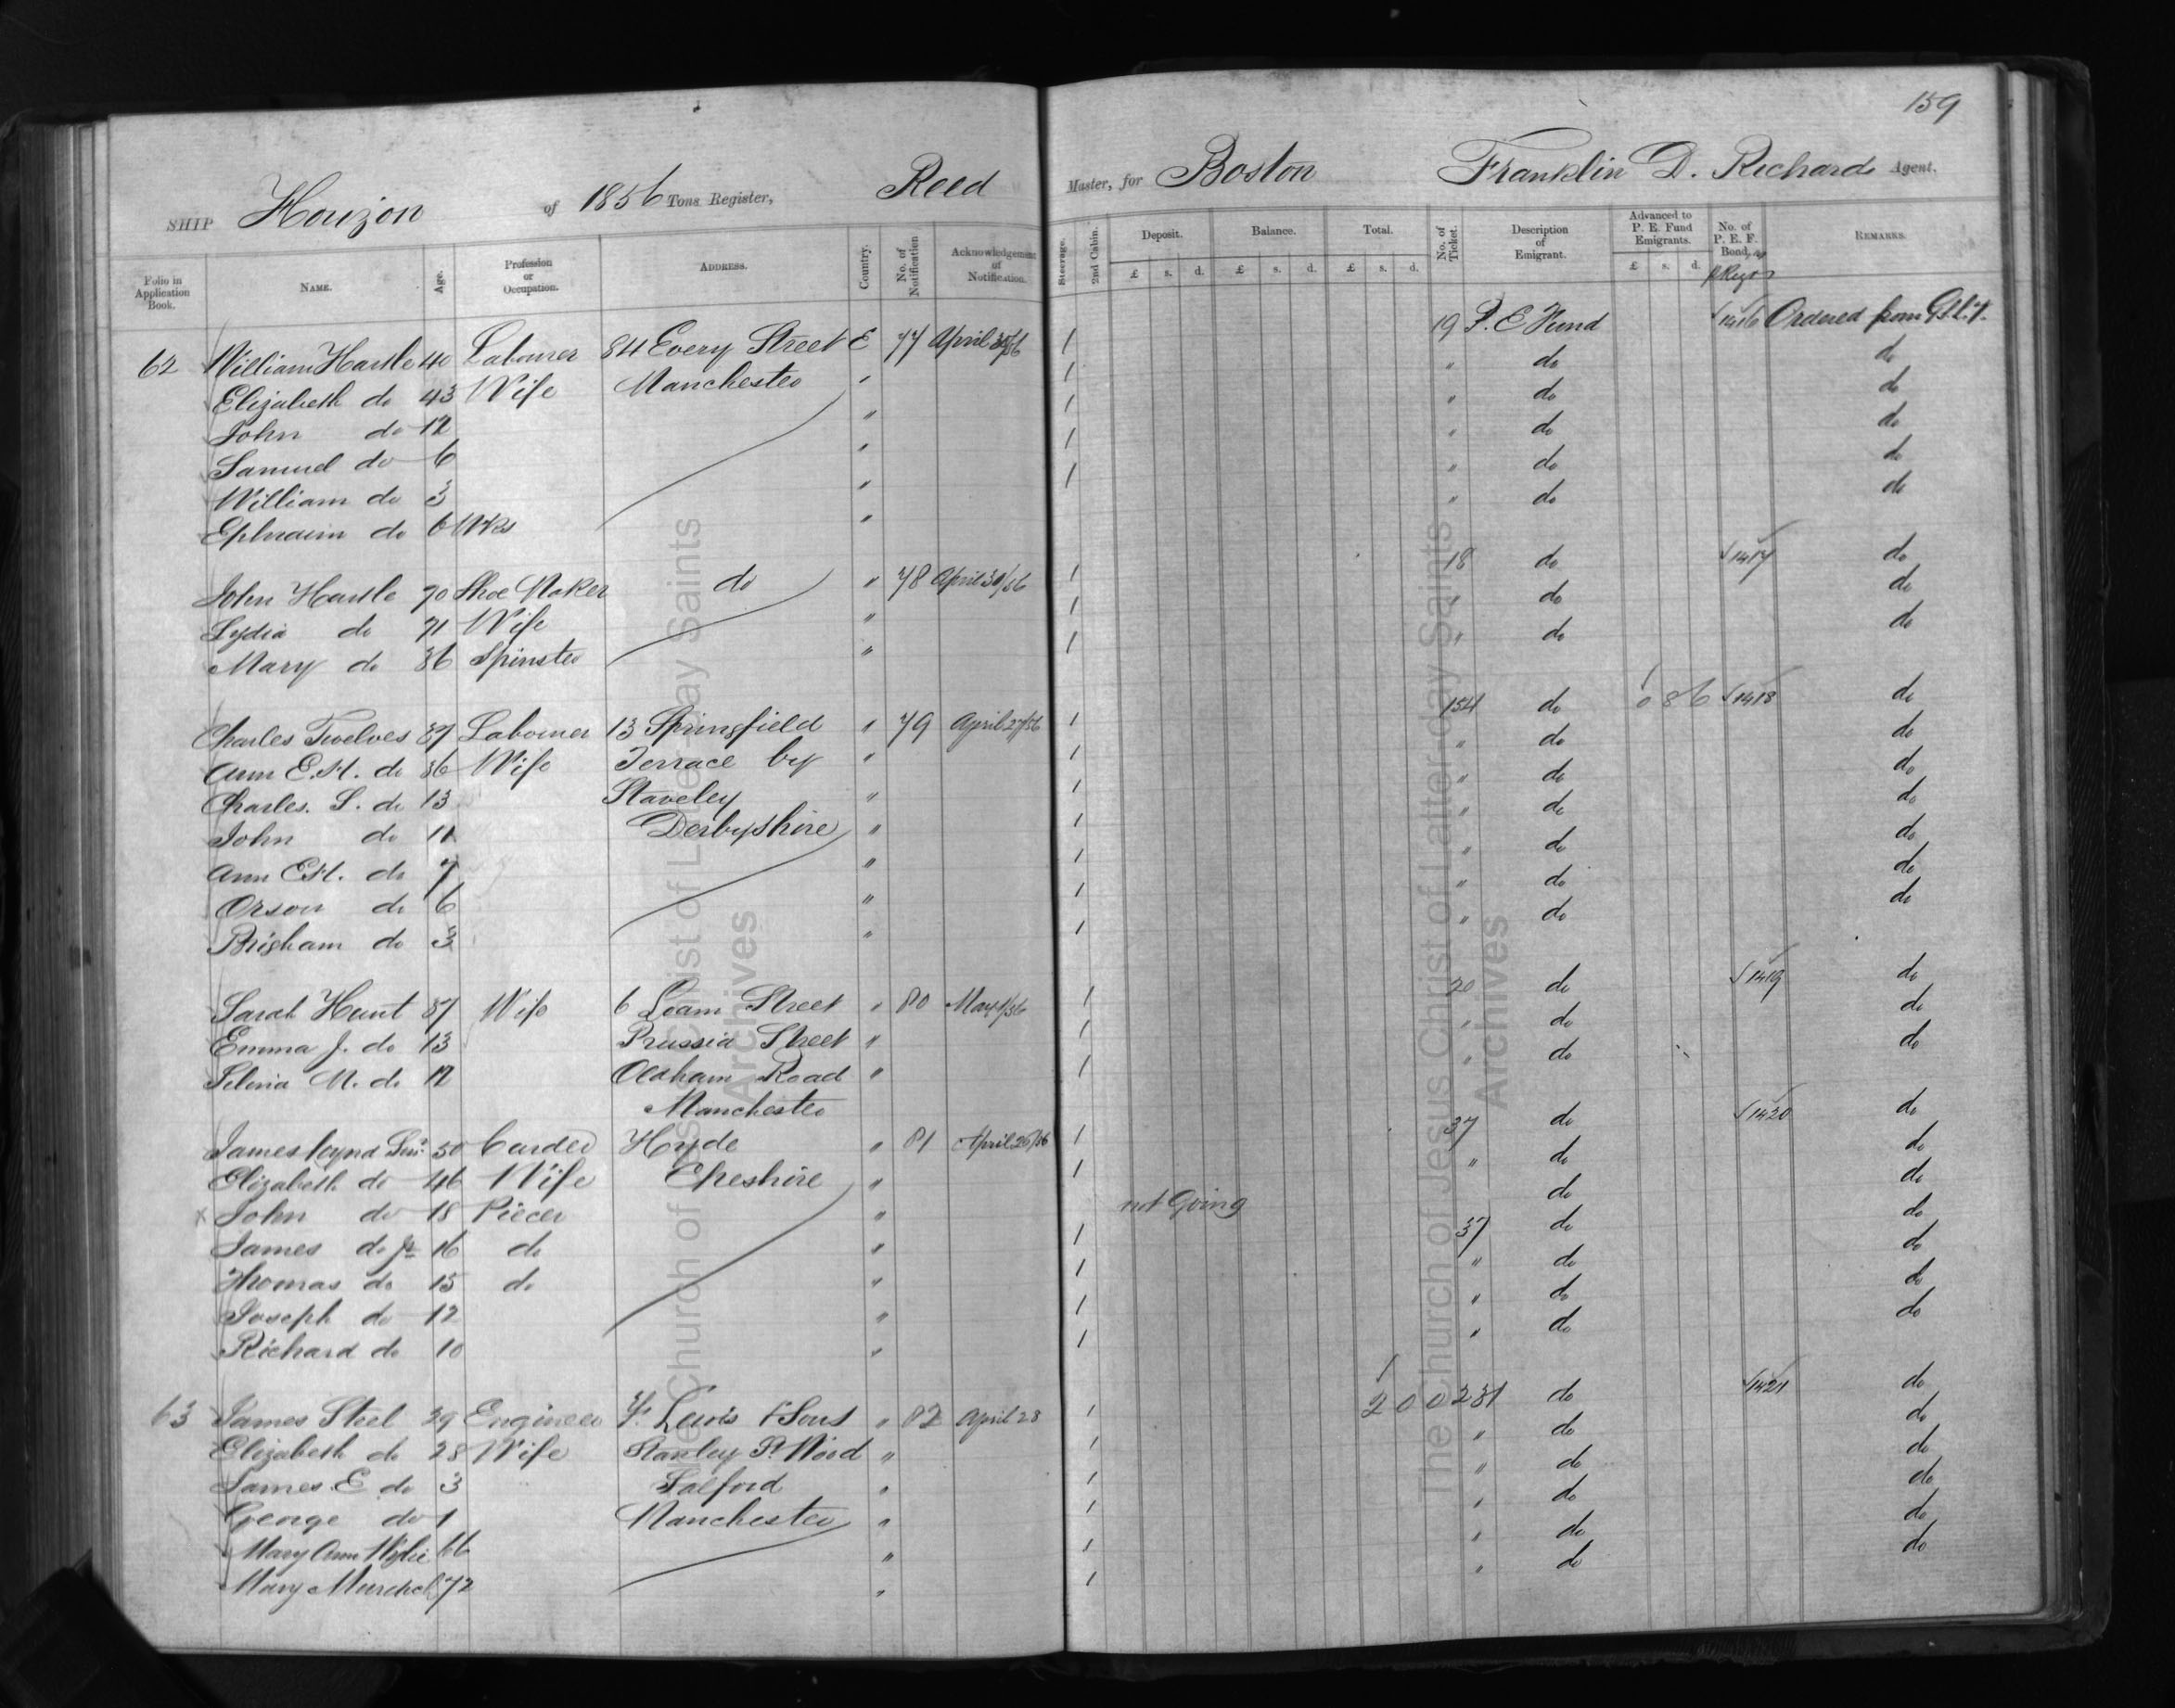 159
SHIP Horizon of 1856 Tons Register, Reed Master, for Boston Franklin D. Richards Agent.
Folio in Application Book. NAME. Age. Profession or Occupation. ADDRESS. Country. No. of Notification Acknowledgement of Notification. Steerage. 2nd Cabin. Deposit. £ s. d. Balance. £ s. d. Total. £ s. d. No. of Ticket. Description of Emigrant. Advanced to P. E. Fund Emigrants. £ s. d. No. of P. E. F. Bond, REMARKS.
62 William Hartle 40 Labourer 84 Every Street E 77 April 30/56 1 19 P. E Fund 1416 Ordered from G.S.L.C.
Elizabeth do 43 Wife Manchester " 1 " do do
John do 12 " 1 " do do
Samuel do 6 " 1 " do do
William do 3 " 1 " do do
Ephraim do 6 Wks " " do do
John Hartle 70 Shoe Maker do " 78 April 30/56 1 18 do 1417 do
Lydia do 71 Wife " 1 " do do
Mary do 36 Spinster " 1 " do do
Charles Twelves 37 Labourer 13 Springfield " 79 April 27/56 1 154 do 0 8 6 1418 do
Ann E.H. do 36 Wife Terrace by " 1 " do do
Charles. S. do 13 Staveley " 1 " do do
John do 11 Derbyshire " 1 " do do
Ann E.H. do 7 " 1 " do do
Orson do 6 " 1 " do do
Brigham do 3 " 1 " do do
Sarah Hunt 37 Wife 6 Loam Street " 80 May 1/56 1 20 do 1419 do
Emma J. do 13 Prussia Street " 1 " do do
Selina M. do 12 Oldham Road " 1 " do do
Manchester
James Senr. 50 Carder Hyde " 81 April 26/56 1 37 do 1420 do
Elizabeth do 46 Wife Cheshire " 1 " do do
x John do 18 Piecer " not Going do do
James do Jr 16 do " 1 37 do do
Thomas do 15 do " 1 " do do
Joseph do 12 " 1 " do do
Richard do 10 " 1 " do do
63 James Steel 29 Engineer Lewis & Sons " 82 April 28 1 2 0 0 231 do 1421 do
Elizabeth do 28 Wife Stanley St. " 1 " do do
James E do 3 Salford " 1 " do do
George do 1 Manchester " 1 " do do
Mary Ann Wylie 66 " 1 " do do
Mary 72 " 1 " do do
The Church of Jesus Christ of Latter-day Saints
Archives
The Church of Jesus Christ of Latter-day Saints
Archives